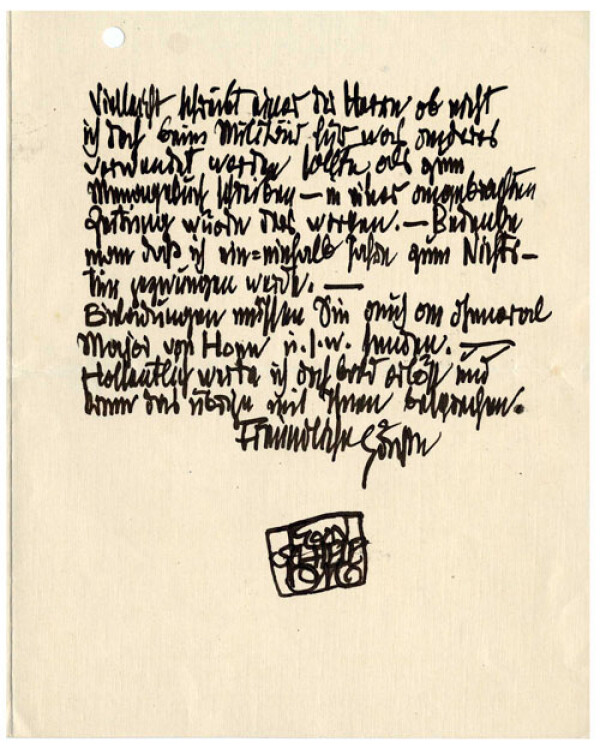 Vielleicht schreibt einer der Herrn ob nicht
ich doch beim Militär für was anderes
verwendet werden sollte als zum
schreiben – in einer angebrachten
Zeitung würde das wirken. – Bedenke
man daß ich ein=einhalb Jahre zum Nichts–
tun gezwungen werde. —
Einladungen müssen Sie auch an General
Major von Hoen u.s.w. senden. —
Hoffentlich werde ich doch bald erlöst und
kann das übrige mit Ihnen besprechen.
Freundliche Grüße
EGON
SCHIELE
1916